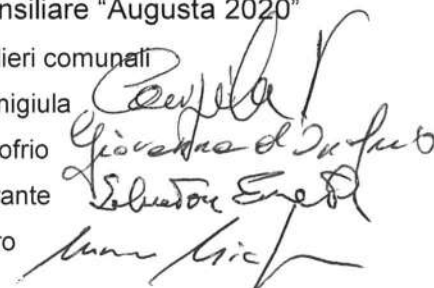 nsiliare “Augusta 2020”
lieri comunali
migiula
ofrio Giovanna d'Onofrio
rante Salvatore
ro